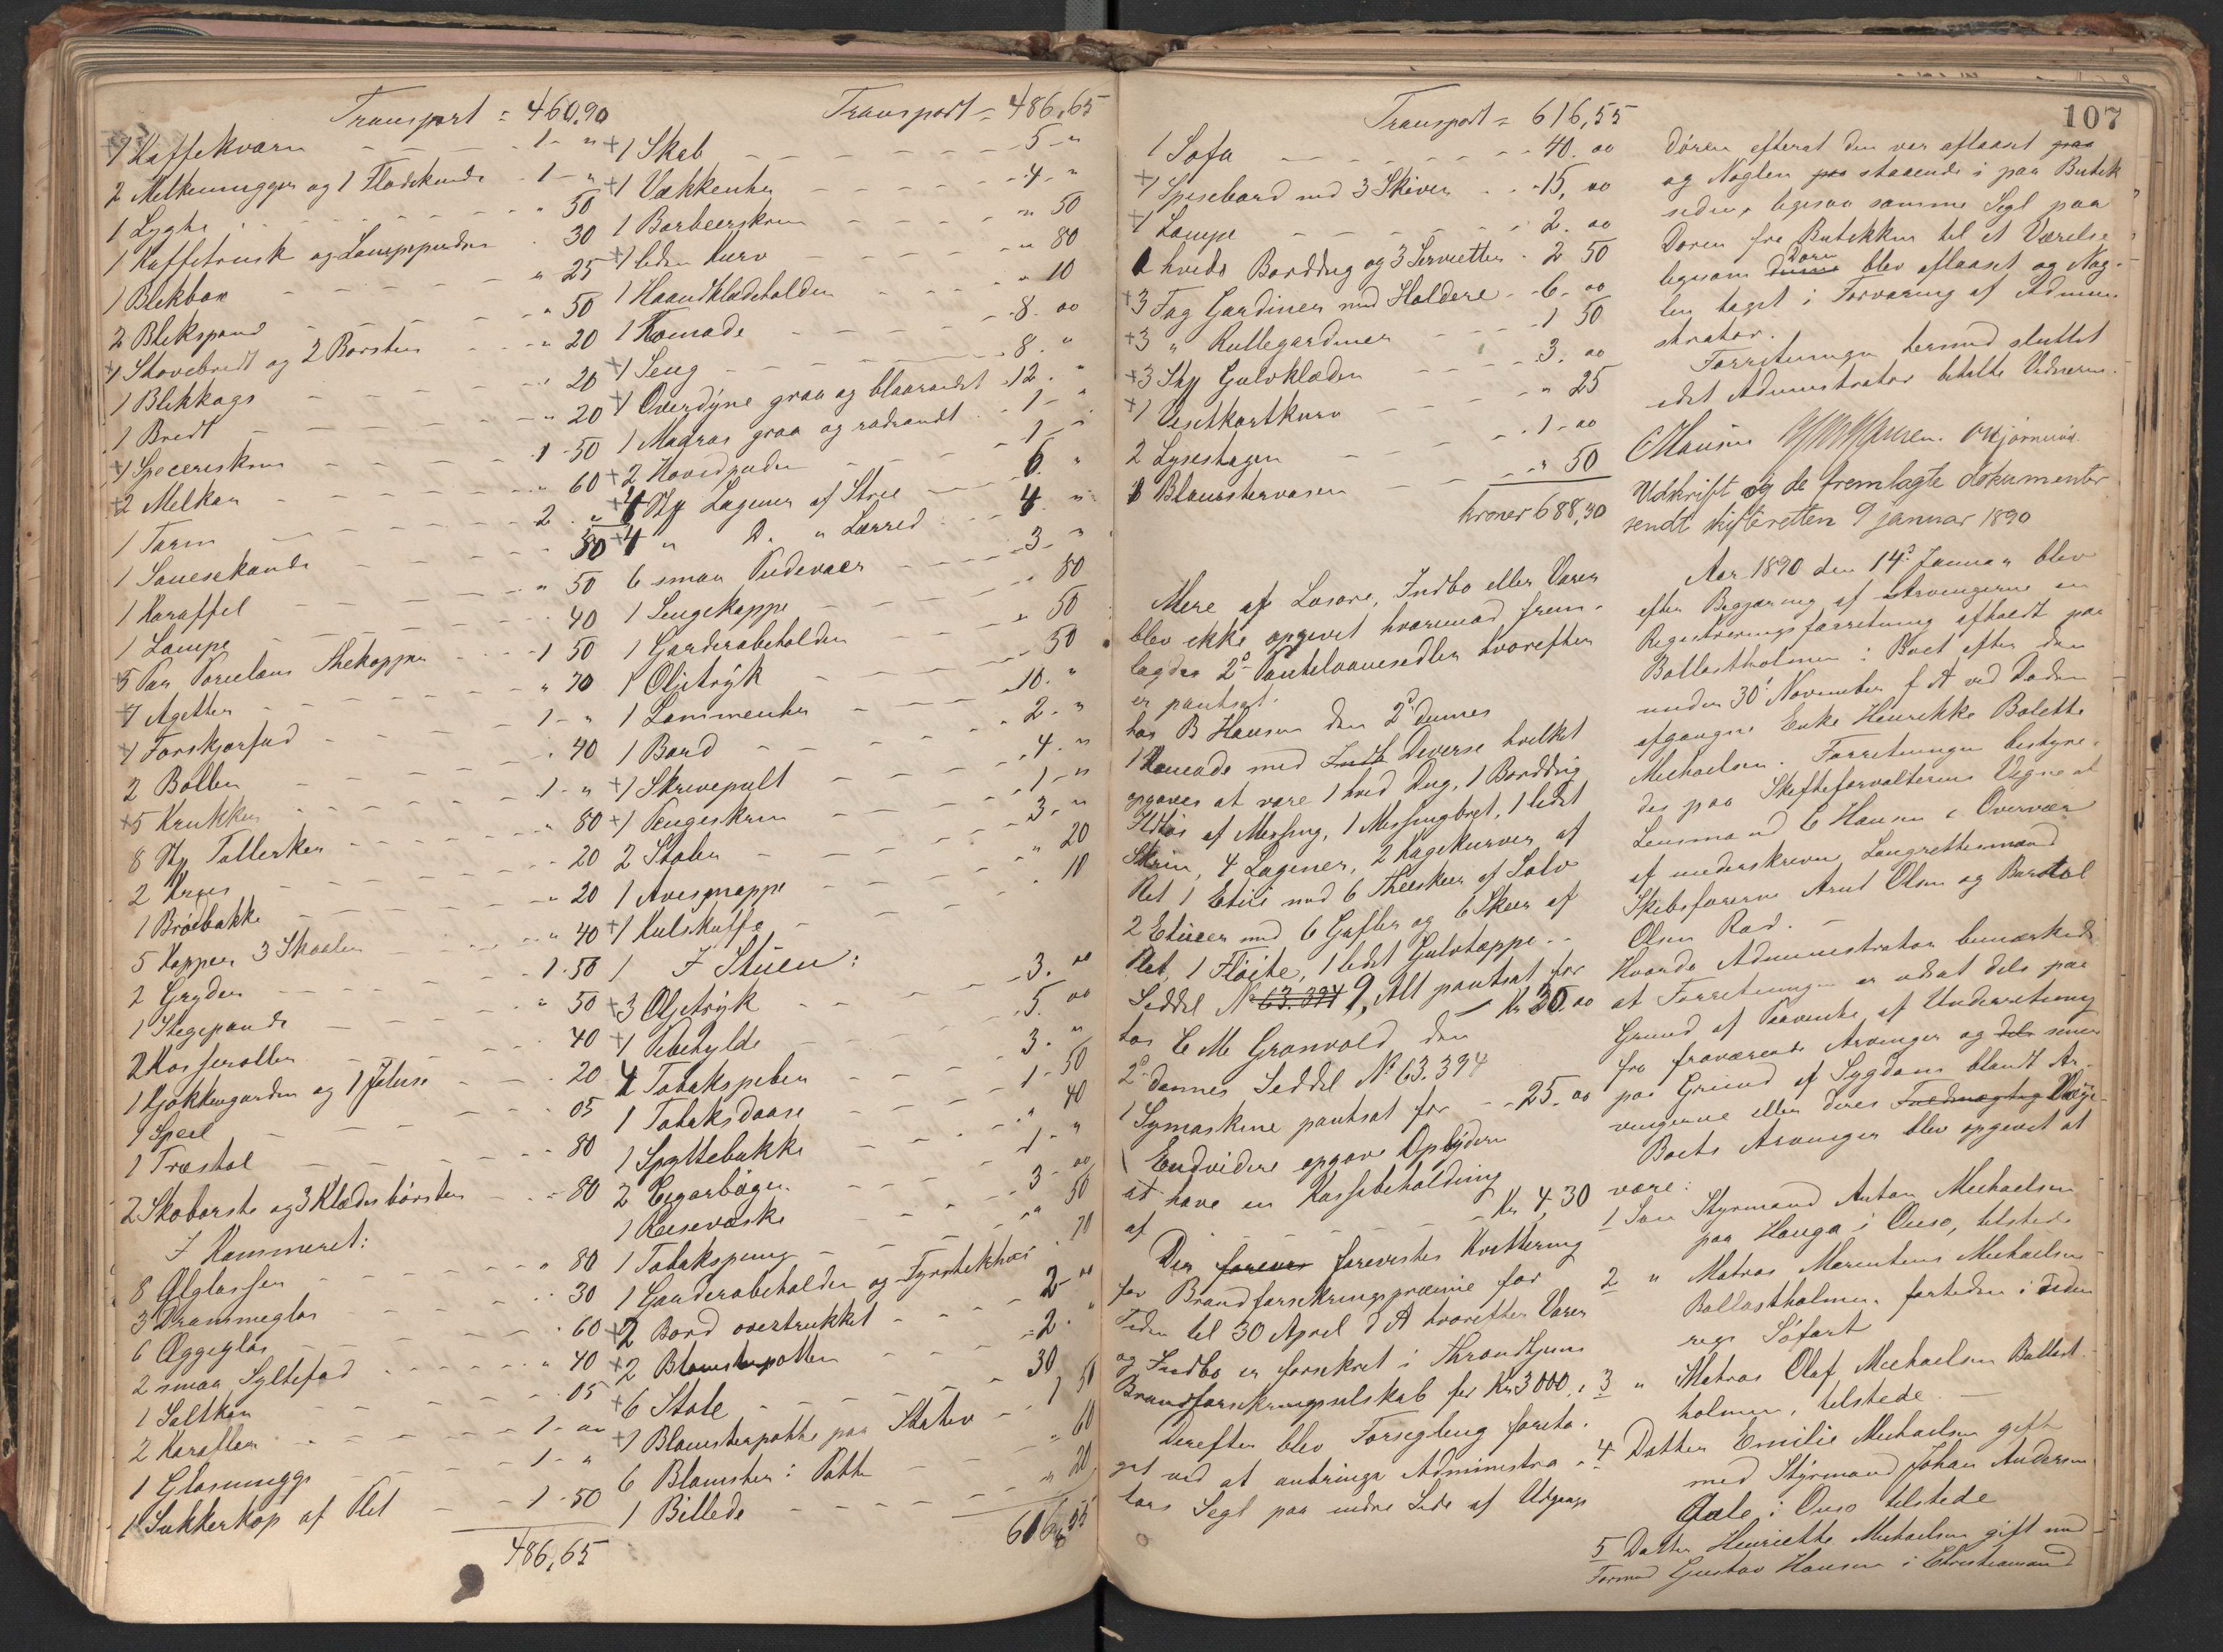 Transport = 460,90
+1 Kaffekværn - - - 1 - "
2 Melkemugger og 1 Flødekande - 1 - "
1 Lygte - - - " 50
1 Kaffetrisk og Lampepudse - 30
1 Blikbox - - " 25
2 Blikspand - - " 50
+1 Støvebredt og 2 Børster - - " 20
1 Blikkags - - - " 20
1 Bredt - - - " 20
+1 Specerikrin - - 1 - 50
+2 Melkar - - - " 60
1 Tarin - - - 2 . "
1 Sausekande - - - 50
1 Karaffel - - - " 50
1 Lampe - - - 40
+5 Par Porcelans Thekopper - - 1 50
+1 Agetter - - - " 70
+1 Forskjærfad - - 1 - "
2 Boller - - - " 40
+5 Krukker - - 1 - "
8 Stk Tallerken - - " 80
2 Kruus - - - 20
1 Brødbakke - - " 20
5 Kopper 3 Skaaler - - " 40
2 Gryder - - - 1 . 50
1 Stegepande - - " 50
2 Kasseroller - - - 40
1 Kjøkkengardin og 1 Jalusi - - 20
1 Speil - - - 05
1 Træstol - - - 80
2 Skobørste og 3 Klædesbørster - - 80
I Kammeret:
8 Ølglasser - - " 80
3 Drammeglas - - 30
6 Æggeglas - - . 60
2 smaa Syltefad - - " 40
1 Saltkar - - 05
2 Karafler - - 1 - "
1 Glasmugge - - 1 - "
1 Sukkerkop af Plet - - 1 - 50
486,65
Transport = 486,65
+1 Skab - - - 5 - "
+1 Vækkeuhr - - - 4 - "
1 Barbeerskrin - - - " 50
+1 liden Kurv - - - " 80
1 Haandklædeholder - - - " 10
1 Komode - - - 8 . 00
+1 Seng - - - 8 . "
+1 Overdyne graa og blaarandet - 12 . "
1 Madras graa og rødrandet - 1 - "
+2 Hovedpuder - - 1 - "
+4 Stk Lagener af Strie - - 6 . "
+4 " D. " Lærred - - 4 . "
6 smaa Pudevaer - - 3 - "
1 Sengekappe - - - " 80
1 Garderobeholder - - - " 50
1 Oljetryk - - - 50
1 Lommeuhr - - - 10 . "
1 Bord - - - 2 - "
+1 Skrivepult - - - 4 - "
+1 Pengeskrin - - - 1 - "
2 Stoler - - - 3 - "
1 Avismappe - - - " 20
+1 Kulskuffe - - . 10
I Stuen:
+3 Oljetryk - - - 3 . 00
+1 Pibehylde - - - 5 . 00
4 Tobakspiber - - - 3 . "
1 Tobaksdaase - - - 1 - 50
1 Spyttebakke - - - " 40
2 Cigarbøger - - - 1 - "
1 Reisevæske - - - 3 - 00
1 Tobakspung - - - " 50
1 Garderobeholder og Fyrstikhus - 70
+2 Bord overtrukket - - - 2 - 00
+2 Blomsterpotter - - - 2 . "
+6 Stole - - - 30
+1 Blomsterpotte paa Stativ - - 1 50
6 Blomster i Potte - - " 60
1 Billede - - - " 20
616,55
Transport = 616,55
1 Sofa - - - 40. 00
+1 Spisebord med 3 Skiver - - 15, 00
+1 Lampe - - - 2. 00
1 hvids Borddug og 3 Servietter - 2 50
+3 Fag Gardiner med Holdere - 6 - 00
+3 " Rullegardiner - - 1 50
+3 Stk Gulvklæder - - 3. 00
+1 Visitkortkurv - - " 25
2 Lysestager - - - 1 - 00
1 Blomstervaser - - - " 50
kroner 688,30
Mere af Løsøre, Indbo eller Varer
blev ikke opgivet hvorimod frem-
lagdes 2de Pantelaanesedler hvorefter
er pantsat.
hos B Hansen den 2d dennes
1 Komode med Indh Diverse hvilket
opgaves at være 1 hvid Dug, 1 Borddug
Ildtøi af Messing, 1 Messingbret, 1 lidet
Skrin, 4 Lagener, 2 Kagekurver af
Plet 1 Etui med 6 Theskeer af Sølv
2 Etuier med 6 Gafler og 6 Skeer af
Plet, 1 Fløite, 1 lidet Gulvtæppe - -
Seddel No 63.394 9, Alt pantsat for
Kr 35.00
hos C M Grønvold den
2d dennes Seddel No 63.394
1 Symaskine pantsat for - - 25. 00
Endvidere opgave Oplyderen
at have en Kassebeholdning
af - - - Kr 4,30
Der forevis forevistes Kvittering
for Brandforsikringspræmie for
Tiden til 30 April d A hvorefter Varer
og Indbo er forsikret i Throndhjems
Brandforsikringsselskab for Kr 3000,
Derefter blev Forsegling foreta-
get ved at anbringe Administra-
tors Segl paa indre Side af Udgangs
107
døren efterat den var aflaaset paa
og Nøglen paa staaende i paa Butik
siden, ligesaa samme Segl paa
Døren fra Butikken til et Værelse
ligesom denne Døre blev aflaaset og Nøg-
len taget i Forvaring af Admini-
strator.
Forretningen hermed sluttet
idet Administrator betalte Vidnerne.
C Hansen O Kjørnevik
Udskrift og de fremlagte dokumenter
sendt skifteretten 9 januar 1890
Aar 1890 den 14d Januar blev
efter Begjæring af Arvingerne en
Registreringsforretning afholdt paa
Ballastholmen i Boet efter den
under 30t November f A ved Døden
afgangne Enke Henrikke Bolette
Michaelsen. Forretningen bestyre-
des paa Skifteforvalterens Vegne af
Lensmand C Hansen i Overvær
af underskrevne Laugrettesmænd
Skibsførerne Arnt Olsen og Barstol
Olsen Rød. -
Hvorda Administrator bemærkede
at Forretningen er udsat dels paa
Grund af Paavente af Underretning
fra fraværende Arvinger og dels senere
paa Grund af Sygdom blandt Ar-
vingerne eller deres Fuldmægtig Værge
Boets Arvinger blev opgivet at
være:
1 Søn Styrmand Anton Michaelsen
paa Hauga i Onsø, tilstede
2 " Matros Marentius Michaelsen
Ballastholmen, fortiden i uden
rigs Søfart
3 " Matros Olaf Michaelsen Ballast-
holmen, tilstede -
4 Datter Emilie Michaelsen gift
med Styrmand Johan Andersen
Aale i Onsø tilstede
5 Datter Henriette Michaelsen gift med
Formand Gustav Hansen i Christiansand